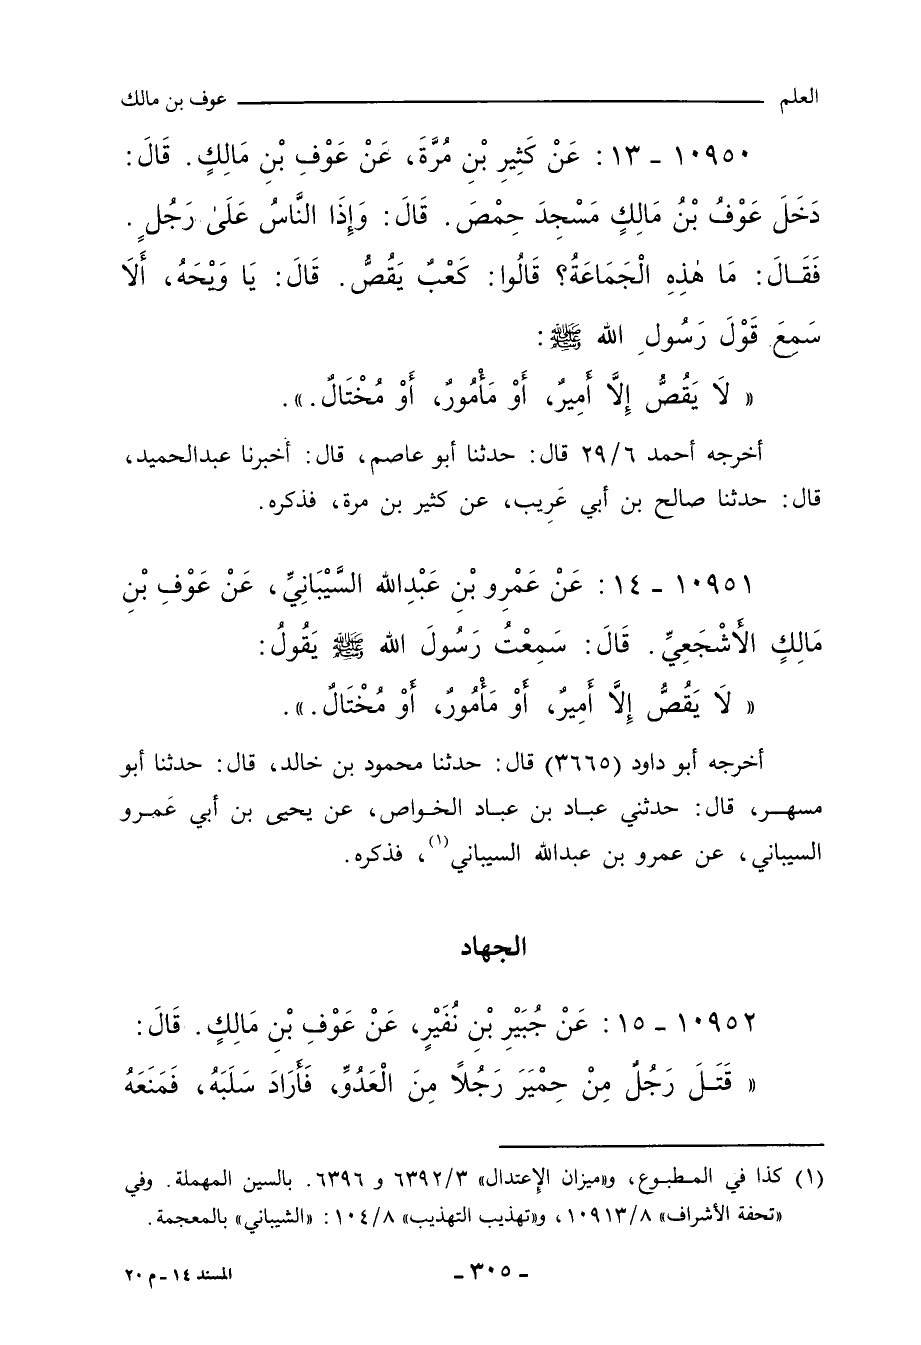 العلم ــــــ عوف بن مالك
١٠٩٥٠ ـ ١٣ : عَنْ كَثِيرِ بْنِ مُرَّةَ، عَنْ عَوْفِ بْنِ مَالِكٍ. قَالَ:
دَخَلَ عَوْفُ بْنُ مَالِكٍ مَسْجِدَ حِمْصَ. قَالَ: وَإِذَا النَّاسُ عَلَىٰ رَجُلٍ.
فَقَالَ: مَا هٰذِهِ الْجَمَاعَةُ؟ قَالُوا: كَعْبٌ يَقُصُّ. قَالَ: يَا وَيْحَهُ، أَلَا
سَمِعَ قَوْلَ رَسُولِ الله ﷺ:
« لَا يَقُصُّ إِلَّا أَمِيرٌ، أَوْ مَأْمُورٌ، أَوْ مُخْتَالٌ.».
أخرجه أحمد ٢٩/٦ قال: حدثنا أبو عاصم، قال: أخبرنا عبدالحميد،
قال: حدثنا صالح بن أبي عَرِيب، عن كثير بن مرة، فذكره.
١٠٩٥١ ـ ١٤ : عَنْ عَمْرِو بْنِ عَبْدِالله السَّيْبَانِيِّ، عَنْ عَوْفِ بْنِ
مَالِكٍ الْأَشْجَعِيِّ. قَالَ: سَمِعْتُ رَسُولَ الله ﷺ يَقُولُ:
« لَا يَقُصُّ إِلَّا أَمِيرٌ، أَوْ مَأْمُورٌ، أَوْ مُخْتَالٌ.».
أخرجه أبو داود (٣٦٦٥) قال: حدثنا محمود بن خالد، قال: حدثنا أبو
مسهر، قال: حدثني عباد بن عباد الخواص، عن يحيى بن أبي عَمرو
السيباني، عن عمرو بن عبدالله السيباني(١)، فذكره.
الجهاد
١٠٩٥٢ ـ ١٥ : عَنْ جُبَيْرِ بْنِ نُفَيْرٍ، عَنْ عَوْفِ بْنِ مَالِكٍ. قَالَ:
« قَتَلَ رَجُلٌ مِنْ حِمْيَرَ رَجُلًا مِنَ الْعَدُوِّ، فَأَرَادَ سَلَبَهُ، فَمَنَعَهُ
(١) كذا في المطبوع، و«ميزان الإعتدال» ٦٣٩٢/٣ و ٦٣٩٦. بالسين المهملة. وفي
«تحفة الأشراف» ١٠٩١٣/٨، و«تهذيب التهذيب» ١٠٤/٨ : «الشيباني» بالمعجمة.
ـ ٣٠٥ ـ
المسند ١٤ ـ م ٢٠